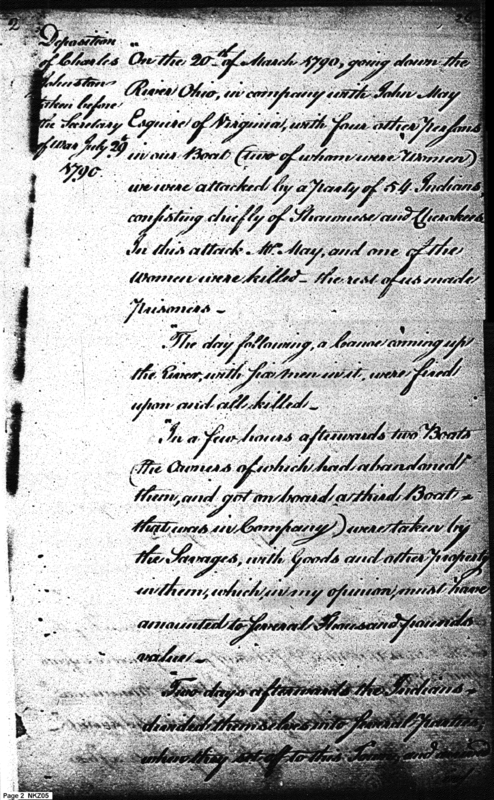 2
Deposition
of Charles
Johnston
taken before
the Secretary
of War July 29th
1790
"On the 20th of March 1790, going down the
River Ohio, in company with John May
Esquire of Virginia, with four other Persons
in our Boat (two of whom were Women)
we were attacked by a Party of 54 Indians,
consisting chiefly of Shawnese and Cherokees
In this attack Mr. May, and one of the
Women were killed – the rest of us made
Prisoners –
"The day following, a Canoe coming up
the River, with six men in it, were fired
upon and all killed –
"In a few hours afterwards two Boats
(the Owners of which had abandoned
them, and got on board a third Boat –
that was in Company) were taken by
the Savages, with Goods and other Property
in them, which, in my opinion, must have
amounted to several Thousand pounds
value –
"Two days afterwards the Indians –
divided themselves into several Parties,
when they set off to this Town, and
Page 2 NKZ05